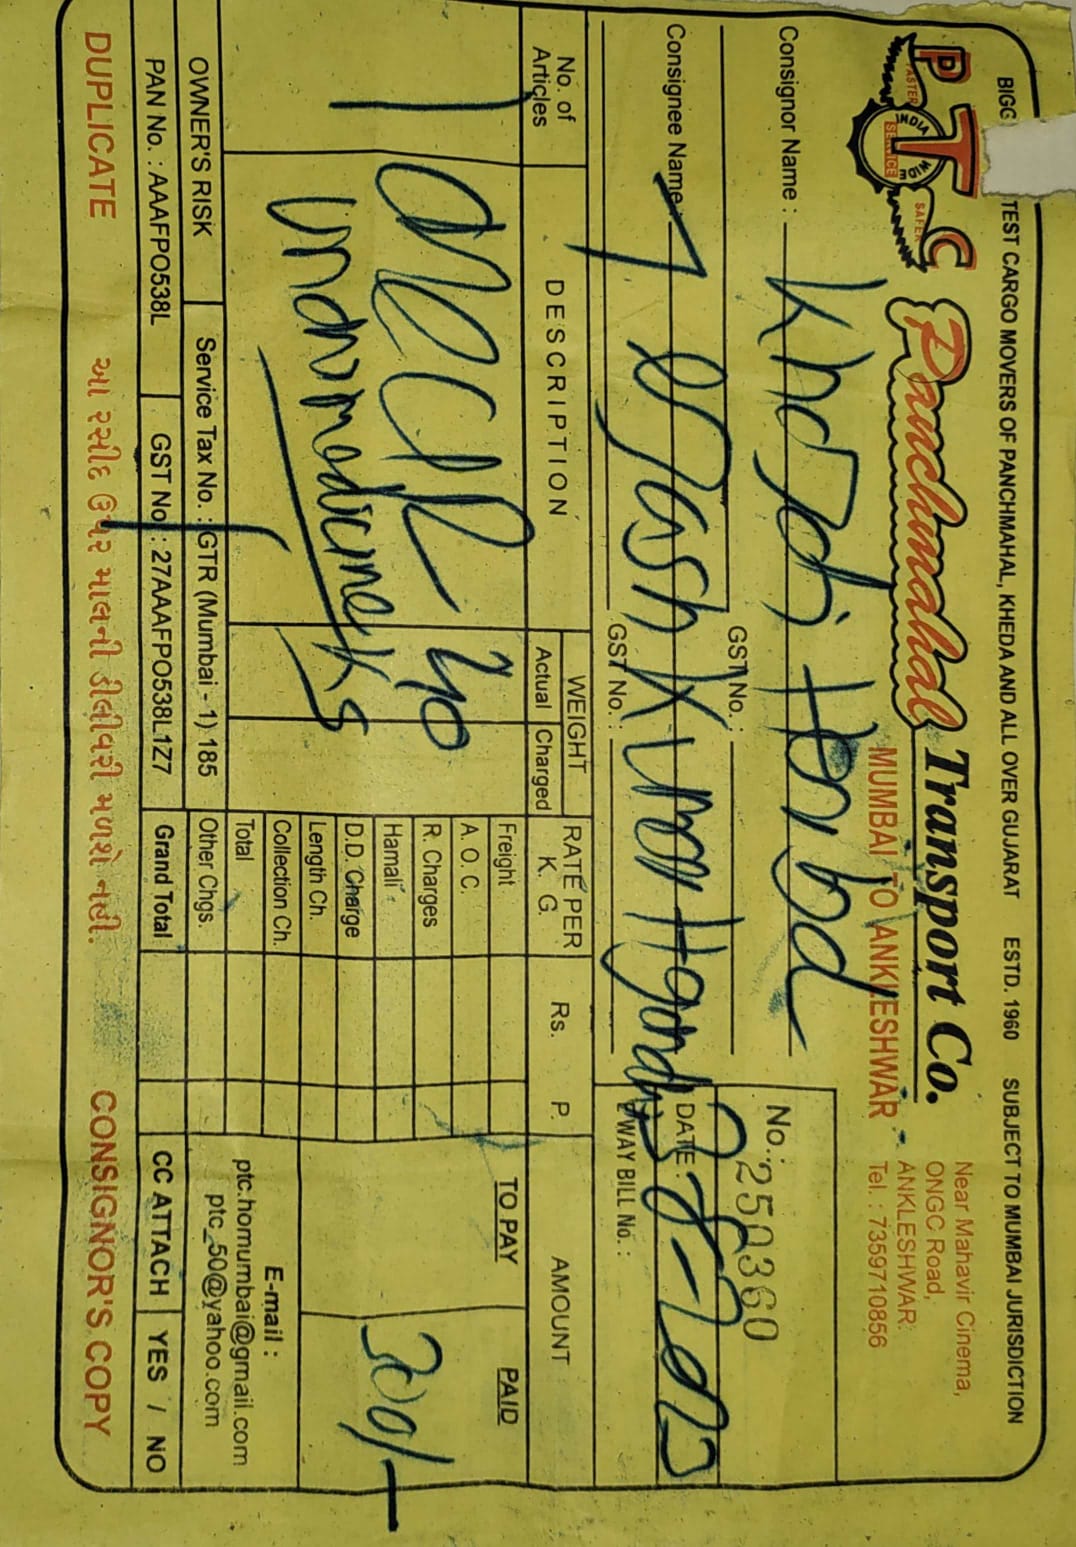 TEST CARGO MOVERS OF PANCHMAHAL, KHEDA AND ALL OVER GUJARAT ESTD. 1960 SUBJECT TO MUMBAI JURISDICTION
PTC
FASTER INDIA WIDE SERVICE SAFER
Panchmahal Transport Co.
MUMBAI TO ANKLESHWAR
Near Mahavir Cinema,
ONGC Road,
ANKLESHWAR.
Tel. : 7359710856
Consignor Name :
GST No. :
No.: 250360
Consignee Name :
GST No. :
DATE :
E WAY BILL No. :
No. of Articles
DESCRIPTION
WEIGHT
Actual Charged
RATE PER K. G.
Rs. P.
AMOUNT
TO PAY PAID
1
40
Ks
30/-
Freight
A. O. C.
R. Charges
Hamali
D.D. Charge
Length Ch.
Collection Ch.
Total
Other Chgs.
Grand Total
E-mail :
ptc.homumbai@gmail.com
ptc_50@yahoo.com
OWNER'S RISK Service Tax No. : GTR (Mumbai - 1) 185
PAN No. : AAAFPO538L GST No. : 27AAAFPO538L1Z7
CC ATTACH YES / NO
DUPLICATE આ રસીદ ઉપર માલની ડીલીવરી મળશે નહી. CONSIGNOR'S COPY